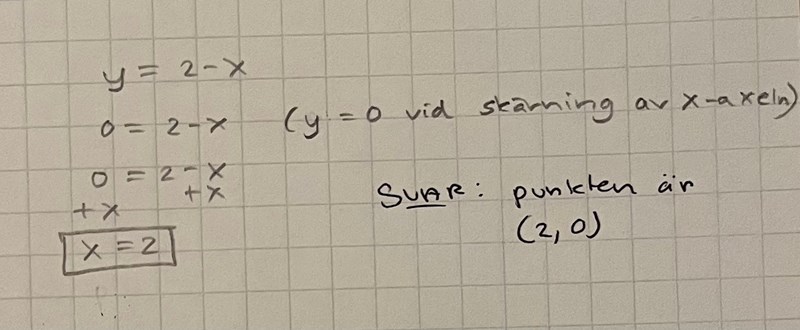 y = 2-x
0 = 2-x (y = 0 vid skärning av x-axeln)
0 = 2-x
+x +x
x = 2
SVAR: punkten är
(2,0)